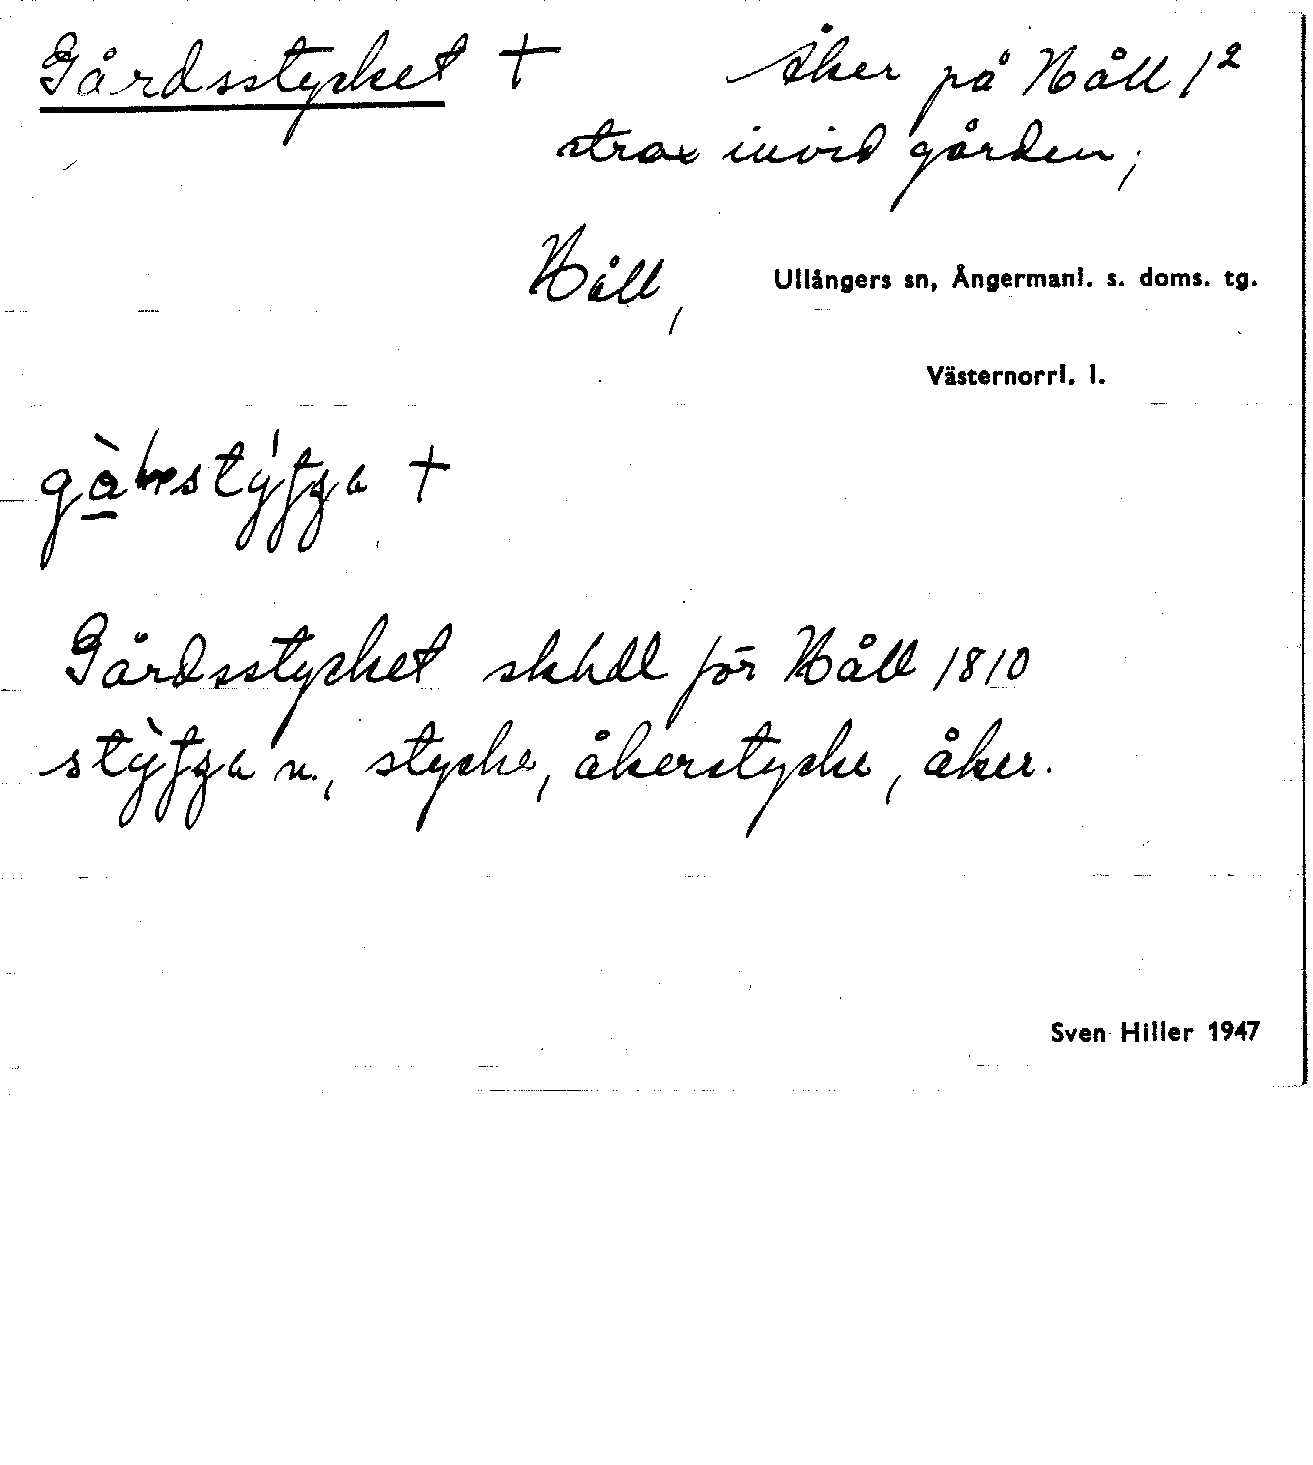 Gårdsstycket + Åker på Håll 1²
strax invid gården,
Håll, Ullångers sn, Ångermanl. s. doms. tg.
Västernorrl. l.
+
Gårdsstycket skhdl för Håll 1810
n., stycke, åkerstycke, åker.
Sven Hiller 1947